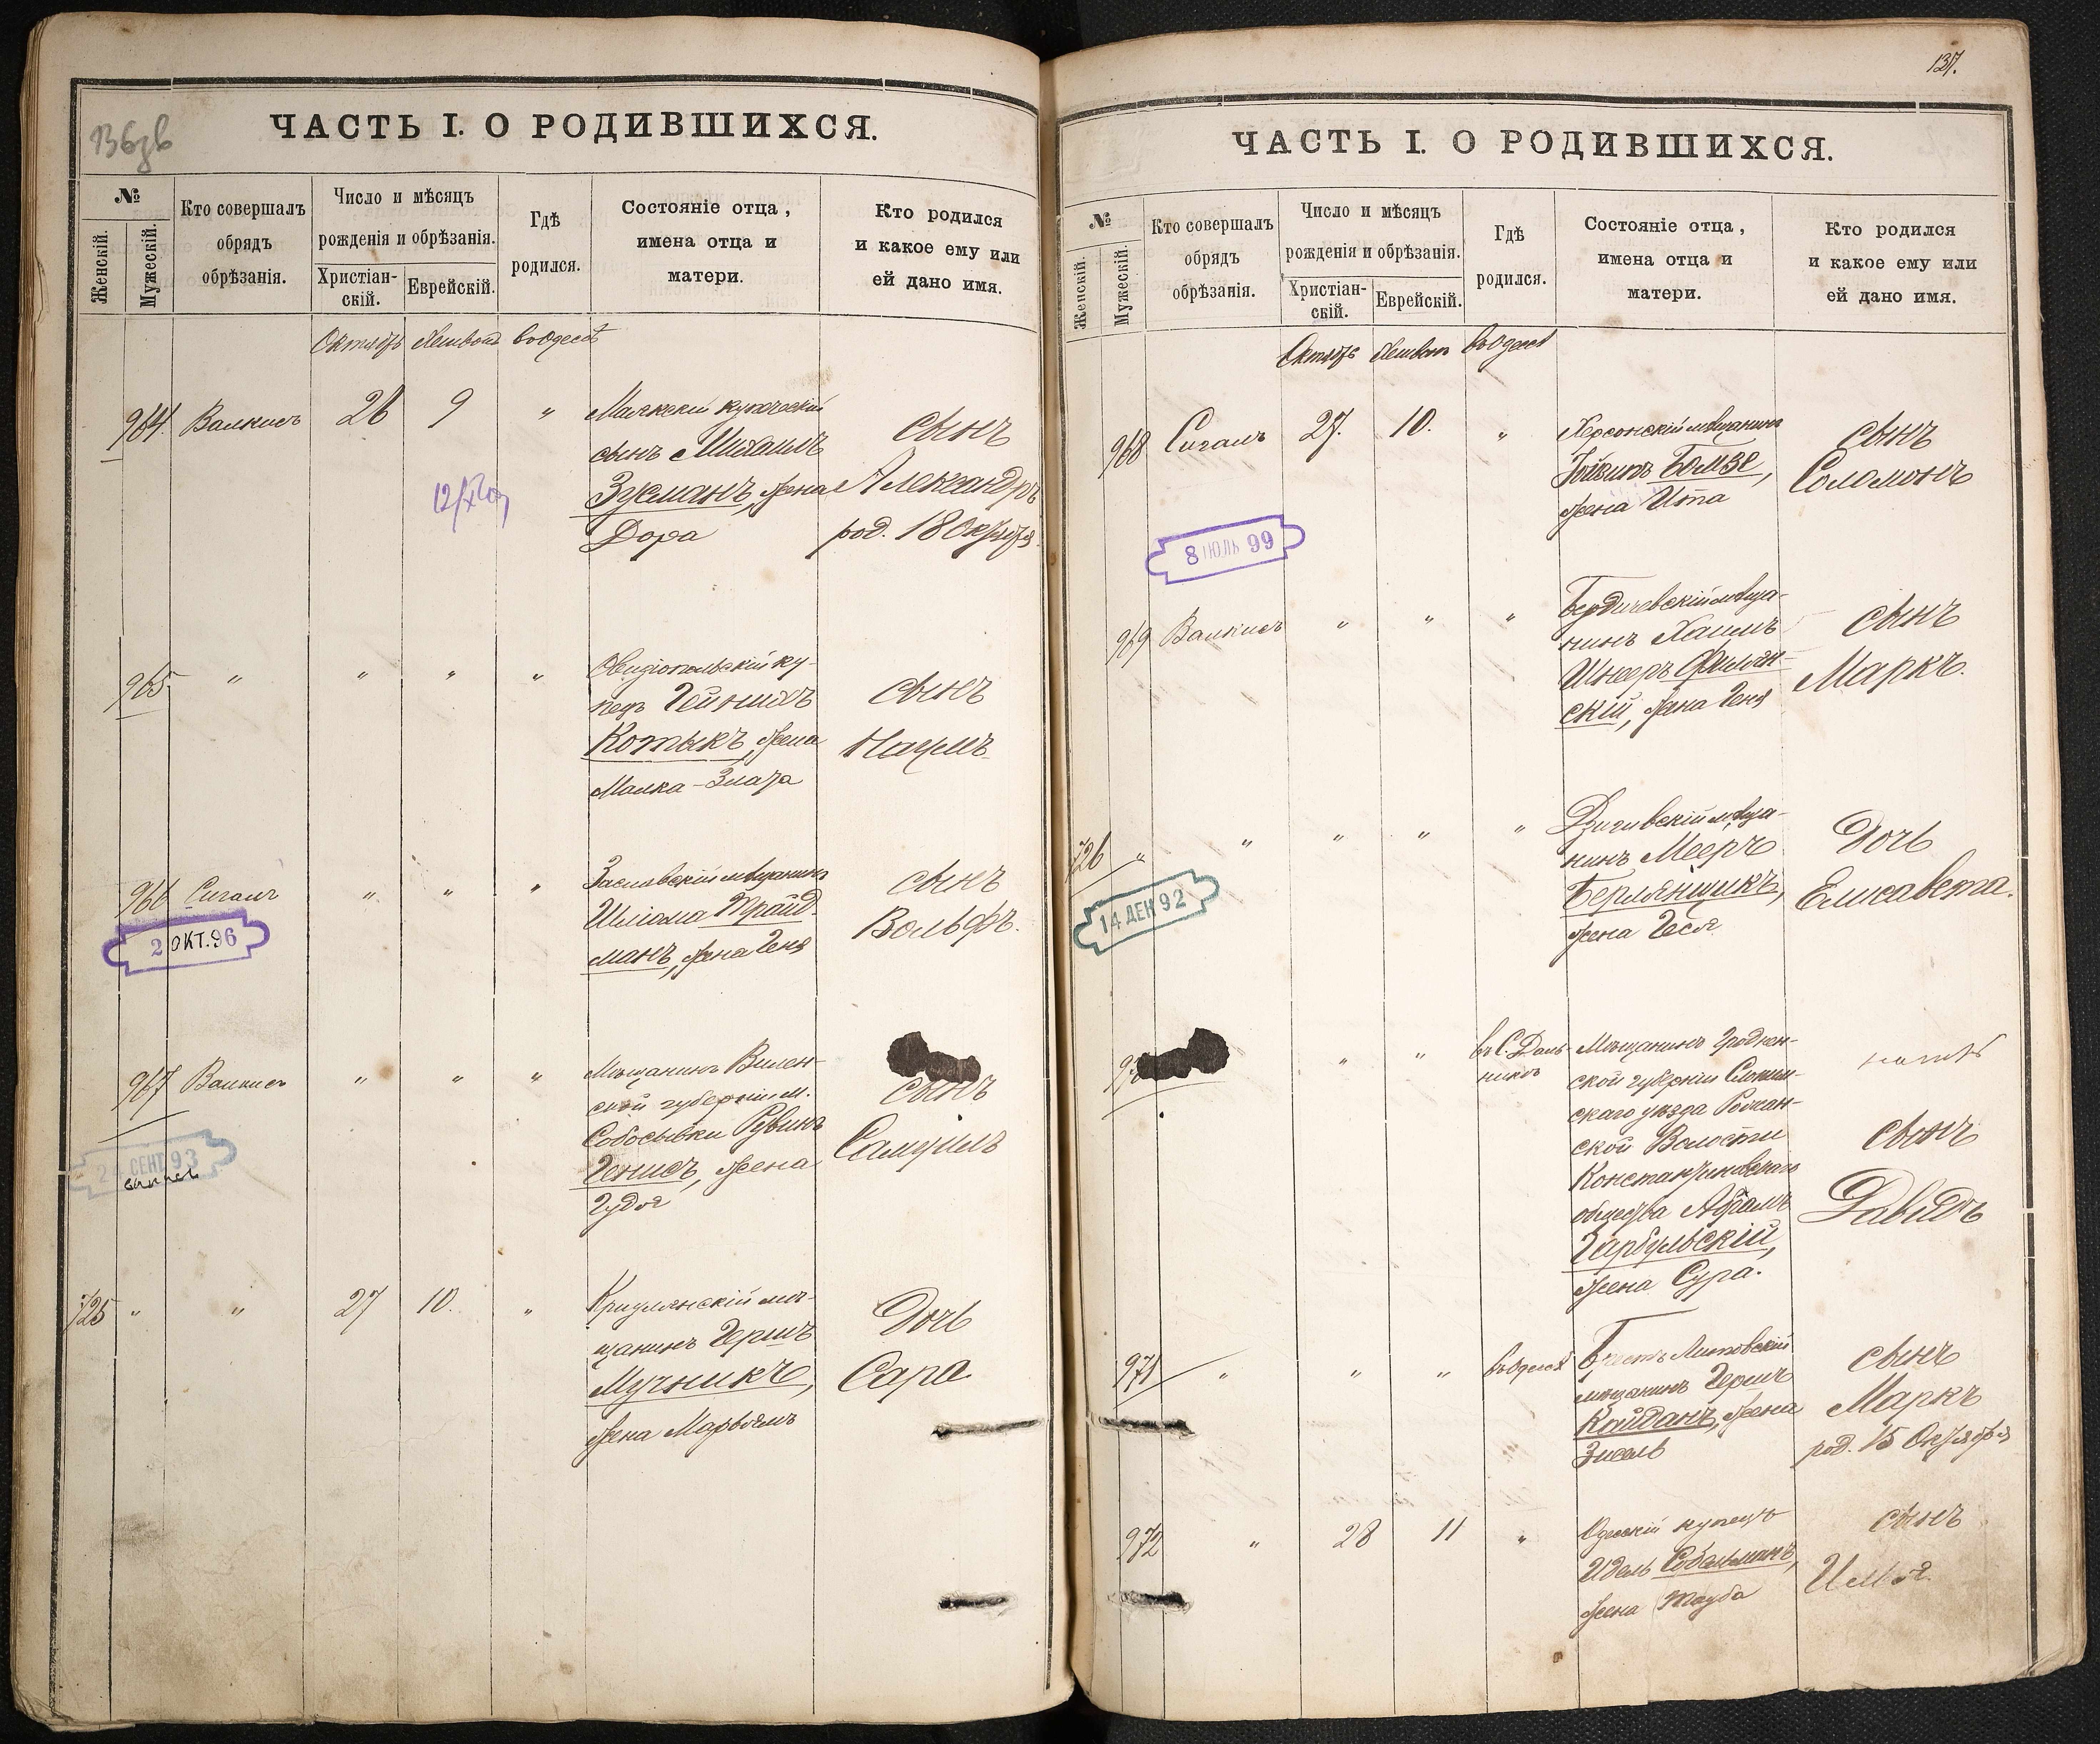 136зв
ЧАСТЬ I. О РОДИВШИХСЯ.
№
Женскій.
Мужескій.
Кто совершалъ
обрядъ
обрѣзанія.
Число и мѣсяцъ
рожденія и обрѣзанія.
Христіан-
скій.
Еврейскій.
Гдѣ
родился.
Состояніе отца,
имена отца и
матери.
Кто родился
и какое ему или
ей дано имя.
Октябрь Хешвонъ въ Одессѣ
964. Валкисъ 26 9 "
Маякскій купеческій
сынъ Михаилъ
Зусманъ, жена
Дора
сынъ
Александръ
род. 18 Октября.
965 " " " "
Овидіопольскій ку-
пецъ Гейнихъ
Котыкъ, жена
Малка-Злата
сынъ
Наумъ
966 Сигалъ " " "
Заславскій мѣщанинъ
Шліома Трайд-
манъ, жена Геня
сынъ
Вольфъ.
2 ОКТ. 96
967 Валкисъ " " "
Мѣщанинъ Вилен-
ской губерніи м.
Рувинъ
Генисъ, жена
Гудя
сынъ
Самуилъ
24 СЕНТ 93
725 " " 27 10. "
Криулянскій мѣ-
щанинъ Гершъ
Мучникъ,
жена
Дочь
Сара
137.
ЧАСТЬ I. О РОДИВШИХСЯ.
№
Женскій.
Мужескій.
Кто совершалъ
обрядъ
обрѣзанія.
Число и мѣсяцъ
рожденія и обрѣзанія.
Христіан-
скій.
Еврейскій.
Гдѣ
родился.
Состояніе отца,
имена отца и
матери.
Кто родился
и какое ему или
ей дано имя.
Октябрь Хешвонъ въ Одессѣ
968 Сигалъ 27. 10. "
Херсонскій мѣщанинъ
Бомзе,
жена Ита
сынъ
Соломонъ
8 ІЮЛЬ 99
969 Валкисъ " " "
Бердичевскій мѣща-
нинъ Хаимъ
Шнееръ Филян-
скій, жена Геня
сынъ
Маркъ.
726 " " " " "
Дзигивскій мѣща-
нинъ Мееръ
Берлянщикъ,
жена Геся
Дочь
Елисавета.
14 ДЕК 92
" " въ С. Даль-
никѣ
Мѣщанинъ Гроднен-
ской губерніи Слоним-
скаго уѣзда Рожан-
ской Волости
Константиновскаго
общества Абрамъ
Гарбульскій,
жена Сура.
сынъ
Давидъ
971 " " " въ Одессѣ
Брестъ Литовскій
мѣщанинъ Гершъ
Койданъ, жена
Зисель
сынъ
Маркъ
род. 15 Октября
972 " 28 11 "
Одесскій купецъ
Идель Собельманъ,
жена Тауба
сынъ
Илья.